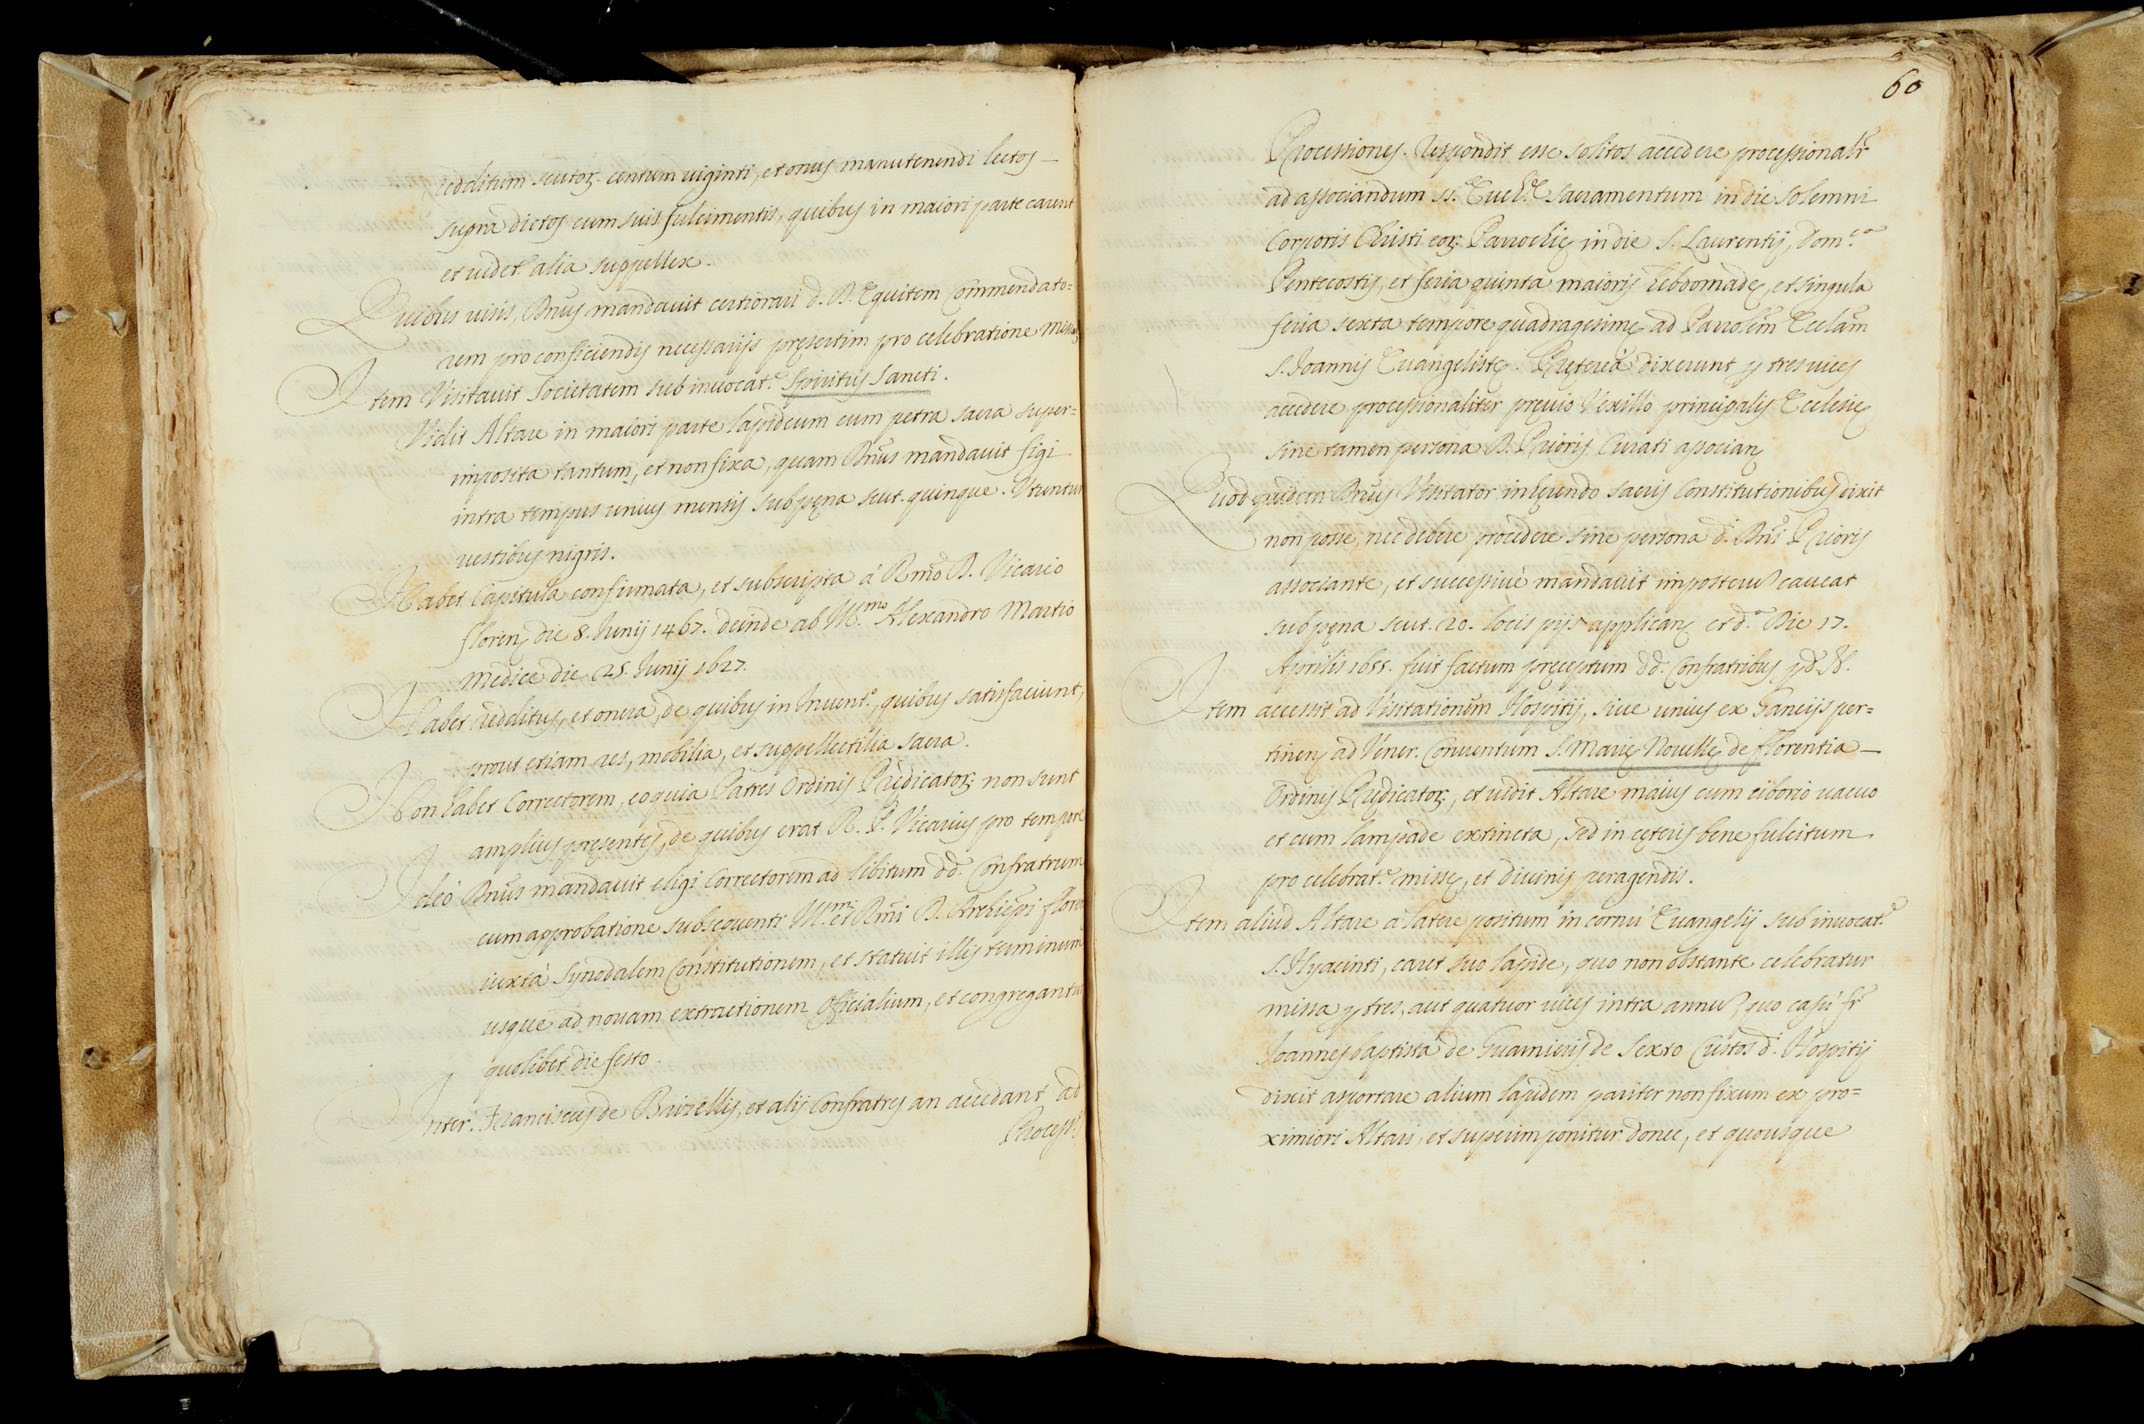 redditum scutoꝝ. centum uiginti, et onus manutenendi lectos
supra dictos cum suis fulcimentis, quibus in maiori parte carent
et uidet alia suppellex.
Quibus uisis, Dnūs mandauit certiorari d. D. Equitem Commendato=
rem pro conficiendis necessarijs pręsertim pro celebratione
Item Visitauit Societatem sub inuocat.e Spiritus Sancti.
Vidit Altare in maiori parte lapideum cum petra sacra super=
imposita tantum, et non fixa, quam Dnūs mandauit figi
intra tempus unius mensis sub pęna scut. quinque. Vtuntur
vestibus nigris.
Habet Capitula confirmata, et subscripta à Rmō D. Vicario
floren die 8. Junij 1467. deinde ab Ill.mo Alexandro Martio
Medice die 25. Junij 1627.
Habet redditus, et onera, de quibus in Inuent.o, quibus satisfaciunt,
prout etiam res, mobilia, et suppellectilia sacra.
Non habet Correctorem, eo quia Patres Ordinis Prędicatoꝝ. non sunt
amplius pręsentes, de quibus erat R. P. Vicarius pro tempore
Ideò Dnūs mandauit eligi Correctorem ad libitum dd. Confratrum
cum approbatione subsequenti Ill.mi et Rmi D. Archiepi floren
iuxta Synodalem Constitutionem, et statuit illis terminum
usque ad nouam extractionem Officialium, et congregantur
quolibet die festo.
Inter. Franciscus de Brizellis, et alij Confratres an accedant ad
Process.s
60
Processiones. Respondit esse solitos accedere processionalr
ad associandum ss. Euch.e Sacramentum in die solemni
Corporis Christi eoꝝ. Parochię in die S. Laurentij, Dom.ca
Pentecostis, et feria quinta maioris hebbomadę, et singula
feria sexta tempore quadragesimę ad Parolem Ecclam
S. Joannis Euangelistę. Pręterea dixerunt ꝑ tres uices
accedere processionaliter pręuio Vexillo principalis Ecclesię
sine tamen persona D. Prioris Curati associan
Quod quidem Dnūs Visitator inhęrendo sacris Constitutionibus dixit
non posse, nec debere procedere sine persona d. Dni Prioris
associante, et successiuè mandauit imposteru caueat
sub pęna scut. 20. locis pijs applican et d.a Die 17.
Aprilis 1655. fuit factum pręceptum dd. Confratribus
Item accessit ad Visitationem Hospitij, siue unius ex Gancijs per=
tinen ad Vener. Conuentum S. Marię Nouellę de florentia
Ordinis Prędicatoꝝ., et uidit Altare maius cum ciborio uacuo
et cum lampade extincta, sed in cęteris bene fulcitum
pro celebrat.e missę, et diuinis peragendis.
Item aliud Altare a latere positum in cornu Euangelij sub inuocat.e
S. Hyacinti, caret suo lapide, quo non obstante celebratur
missa ꝑ tres, aut quatuor uices intra annu, quo casu fr
Joannes baptista de Guarnieris de Sexto Custos d. Hospitij
dixit asportare alium lapidem pariter non fixum ex pro=
ximiori Altari, et superimponitur donec, et quousque